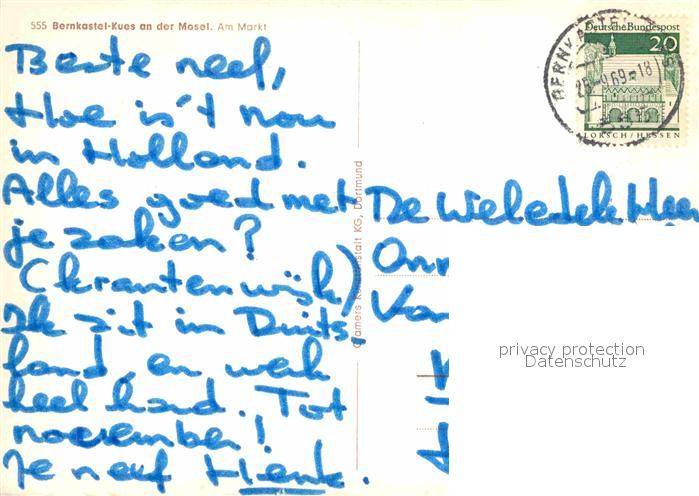 555 Bernkastel-Kues an der Mosel. Am Markt
Beste neef,
Hoe is 't nou
in Holland.
Alles goed met
je zaken?
(krantenwijk)
Ik zit in Duits
land, en werk
heel hard. Tot
november!
Je neef Henk.
Cramers Kunstanstalt KG, Dortmund
Deutsche Bundespost
20
LORSCH/HESSEN
BERNKASTEL
25.-9.69.-18
De Weledele Heer
Van
privacy protection
Datenschutz